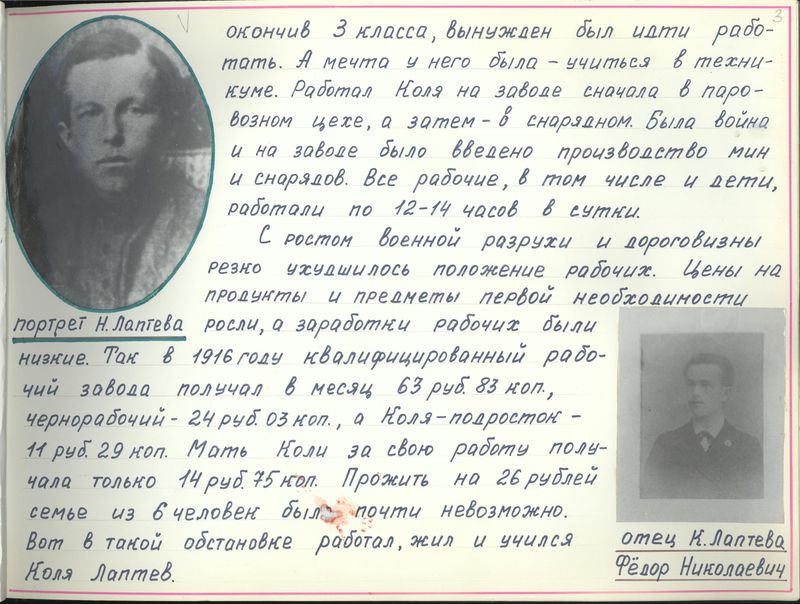 3
окончив 3 класса, вынужден был идти рабо-
тать. А мечта у него была – учиться в техни-
куме. Работал Коля на заводе сначала в паро-
возном цехе, а затем – в снарядном. Была война
и на заводе было введено производство мин
и снарядов. Все рабочие, в том числе и дети,
работали по 12-14 часов в сутки.
С ростом военной разрухи и дороговизны
резко ухудшилось положение рабочих. Цены на
продукты и предметы первой необходимости
портрет Н. Лаптева
росли, а заработки рабочих были
низкие. Так в 1916 году квалифицированный рабо-
чий завода получал в месяц 63 руб. 83 коп.,
чернорабочий – 24 руб. 03 коп., а Коля – подросток –
11 руб. 29 коп. Мать Коли за свою работу полу-
чала только 14 руб. 75 коп. Прожить на 26 рублей
семье из 6 человек было почти невозможно.
Вот в такой обстановке работал, жил и учился
Коля Лаптев.
отец К. Лаптева
Фёдор Николаевич